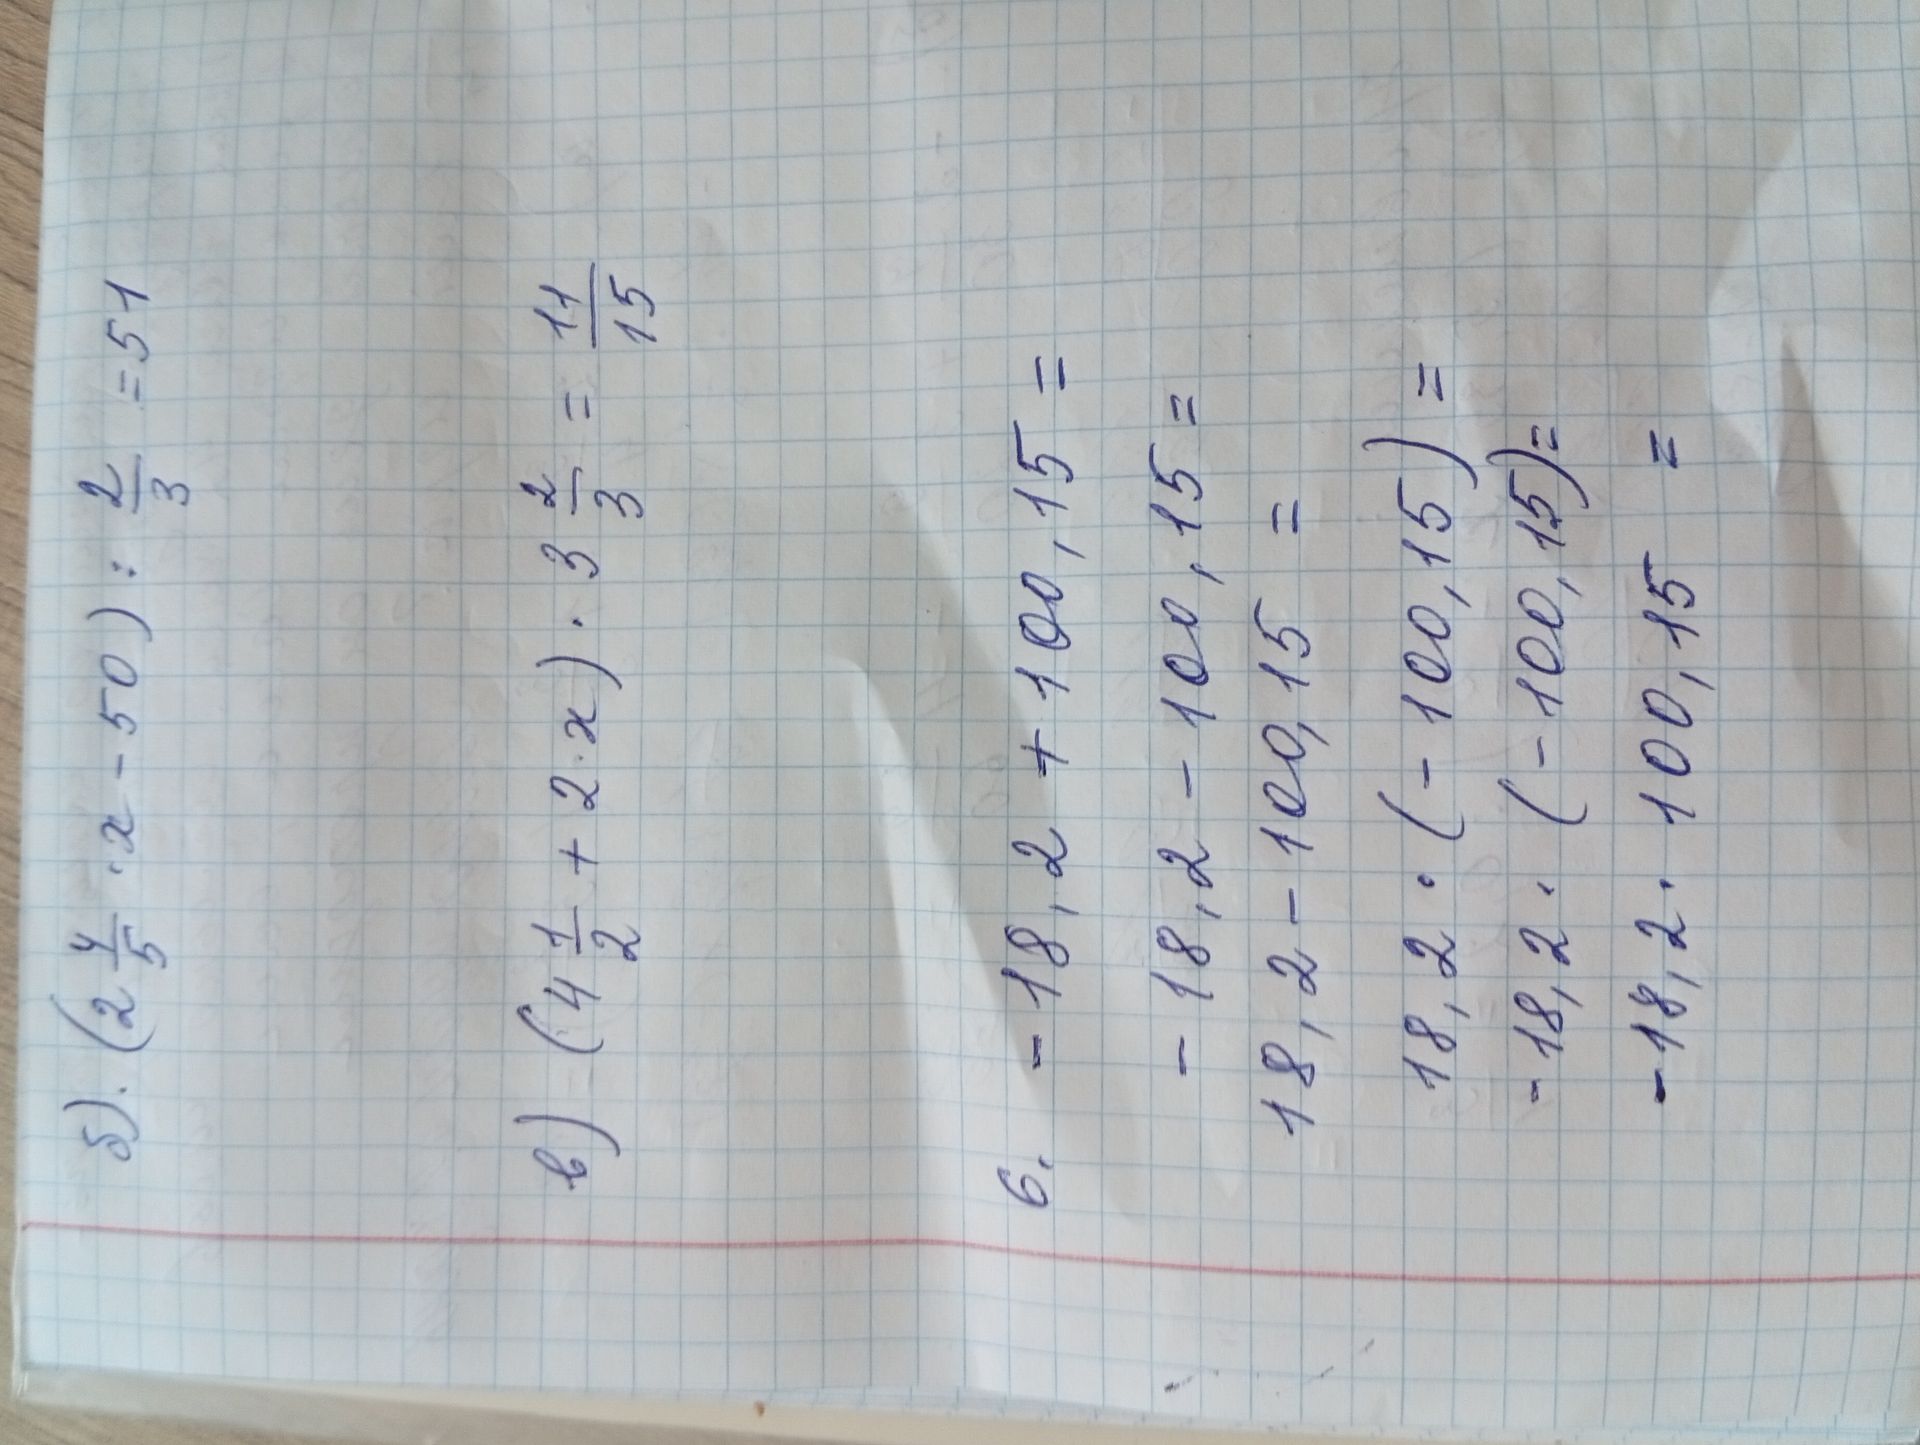 б). (2 4/5 · x - 50) : 2/3 = 51
в) (4 1/2 + 2 · x) · 3 2/3 = 11/15
6. - 18,2 + 100,15 =
- 18,2 - 100,15 =
18,2 - 100,15 =
18,2 · (- 100,15) =
-18,2 · (- 100,15) =
-18,2 · 100,15 =